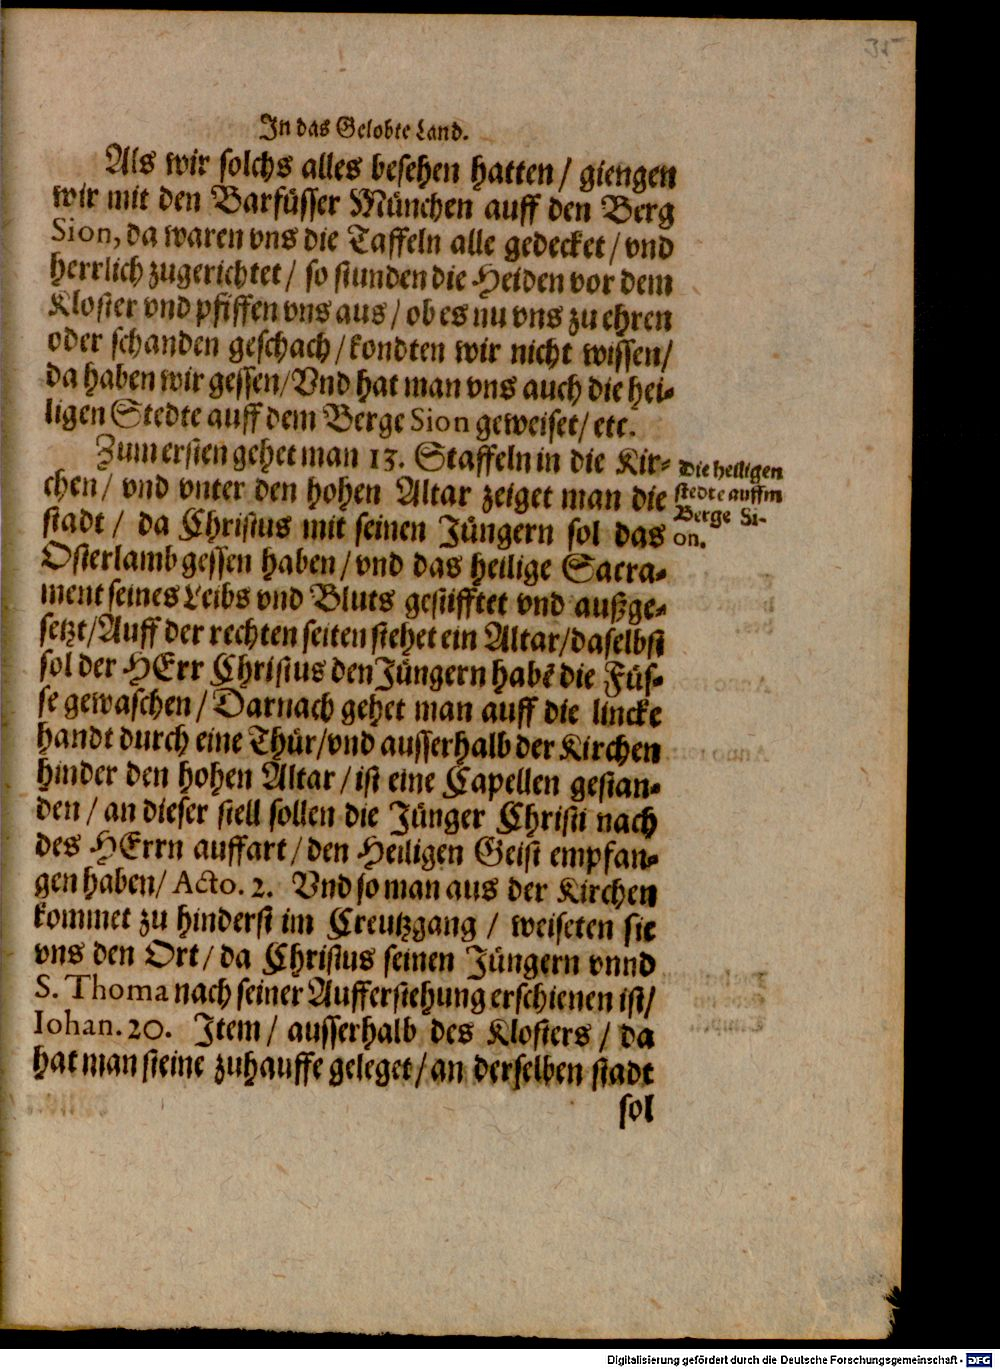 35
In das Gelobte Land.
Als wir solchs alles besehen hatten / giengen
wir mit den Barfüsser München auff den Berg
Sion, da waren vns die Taffeln alle gedecket / vnd
herrlich zugerichtet / so stunden die Heiden vor dem
Kloster vnd pfiffen vns aus / ob es nu vns zu ehren
oder schanden geschach / kondten wir nicht wissen /
da haben wir gessen / Vnd hat man vns auch die hei-
ligen Stedte auff dem Berge Sion geweiset / etc.
Zum ersten gehet man 13. Staffeln in die Kir-
chen / vnd vnter den hohen Altar zeiget man die
stadt / da Christus mit seinen Jüngern sol das
Osterlamb gessen haben / vnd das heilige Sacra-
ment seines Leibs vnd Bluts gestifftet vnd außge-
setzt / Auff der rechten seiten stehet ein Altar / daselbst
sol der HErr Christus den Jüngern habē die Füs-
se gewaschen / Darnach gehet man auff die lincke
handt durch eine Thür / vnd ausserhalb der Kirchen
hinder den hohen Altar / ist eine Capellen gestan-
den / an dieser stell sollen die Jünger Christi nach
des HErrn auffart / den Heiligen Geist empfan-
gen haben / Acto. 2. Vnd so man aus der Kirchen
kommet zu hinderst im Creutzgang / weiseten sie
vns den Ort / da Christus seinen Jüngern vnnd
S. Thoma nach seiner Aufferstehung erschienen ist /
Iohan. 20. Item / ausserhalb des Klosters / da
hat man steine zuhauffe geleget / an derselben stadt
sol
Die heiligen
stedte auffm
Berge Si-
on.
Digitalisierung gefördert durch die Deutsche Forschungsgemeinschaft - DFG